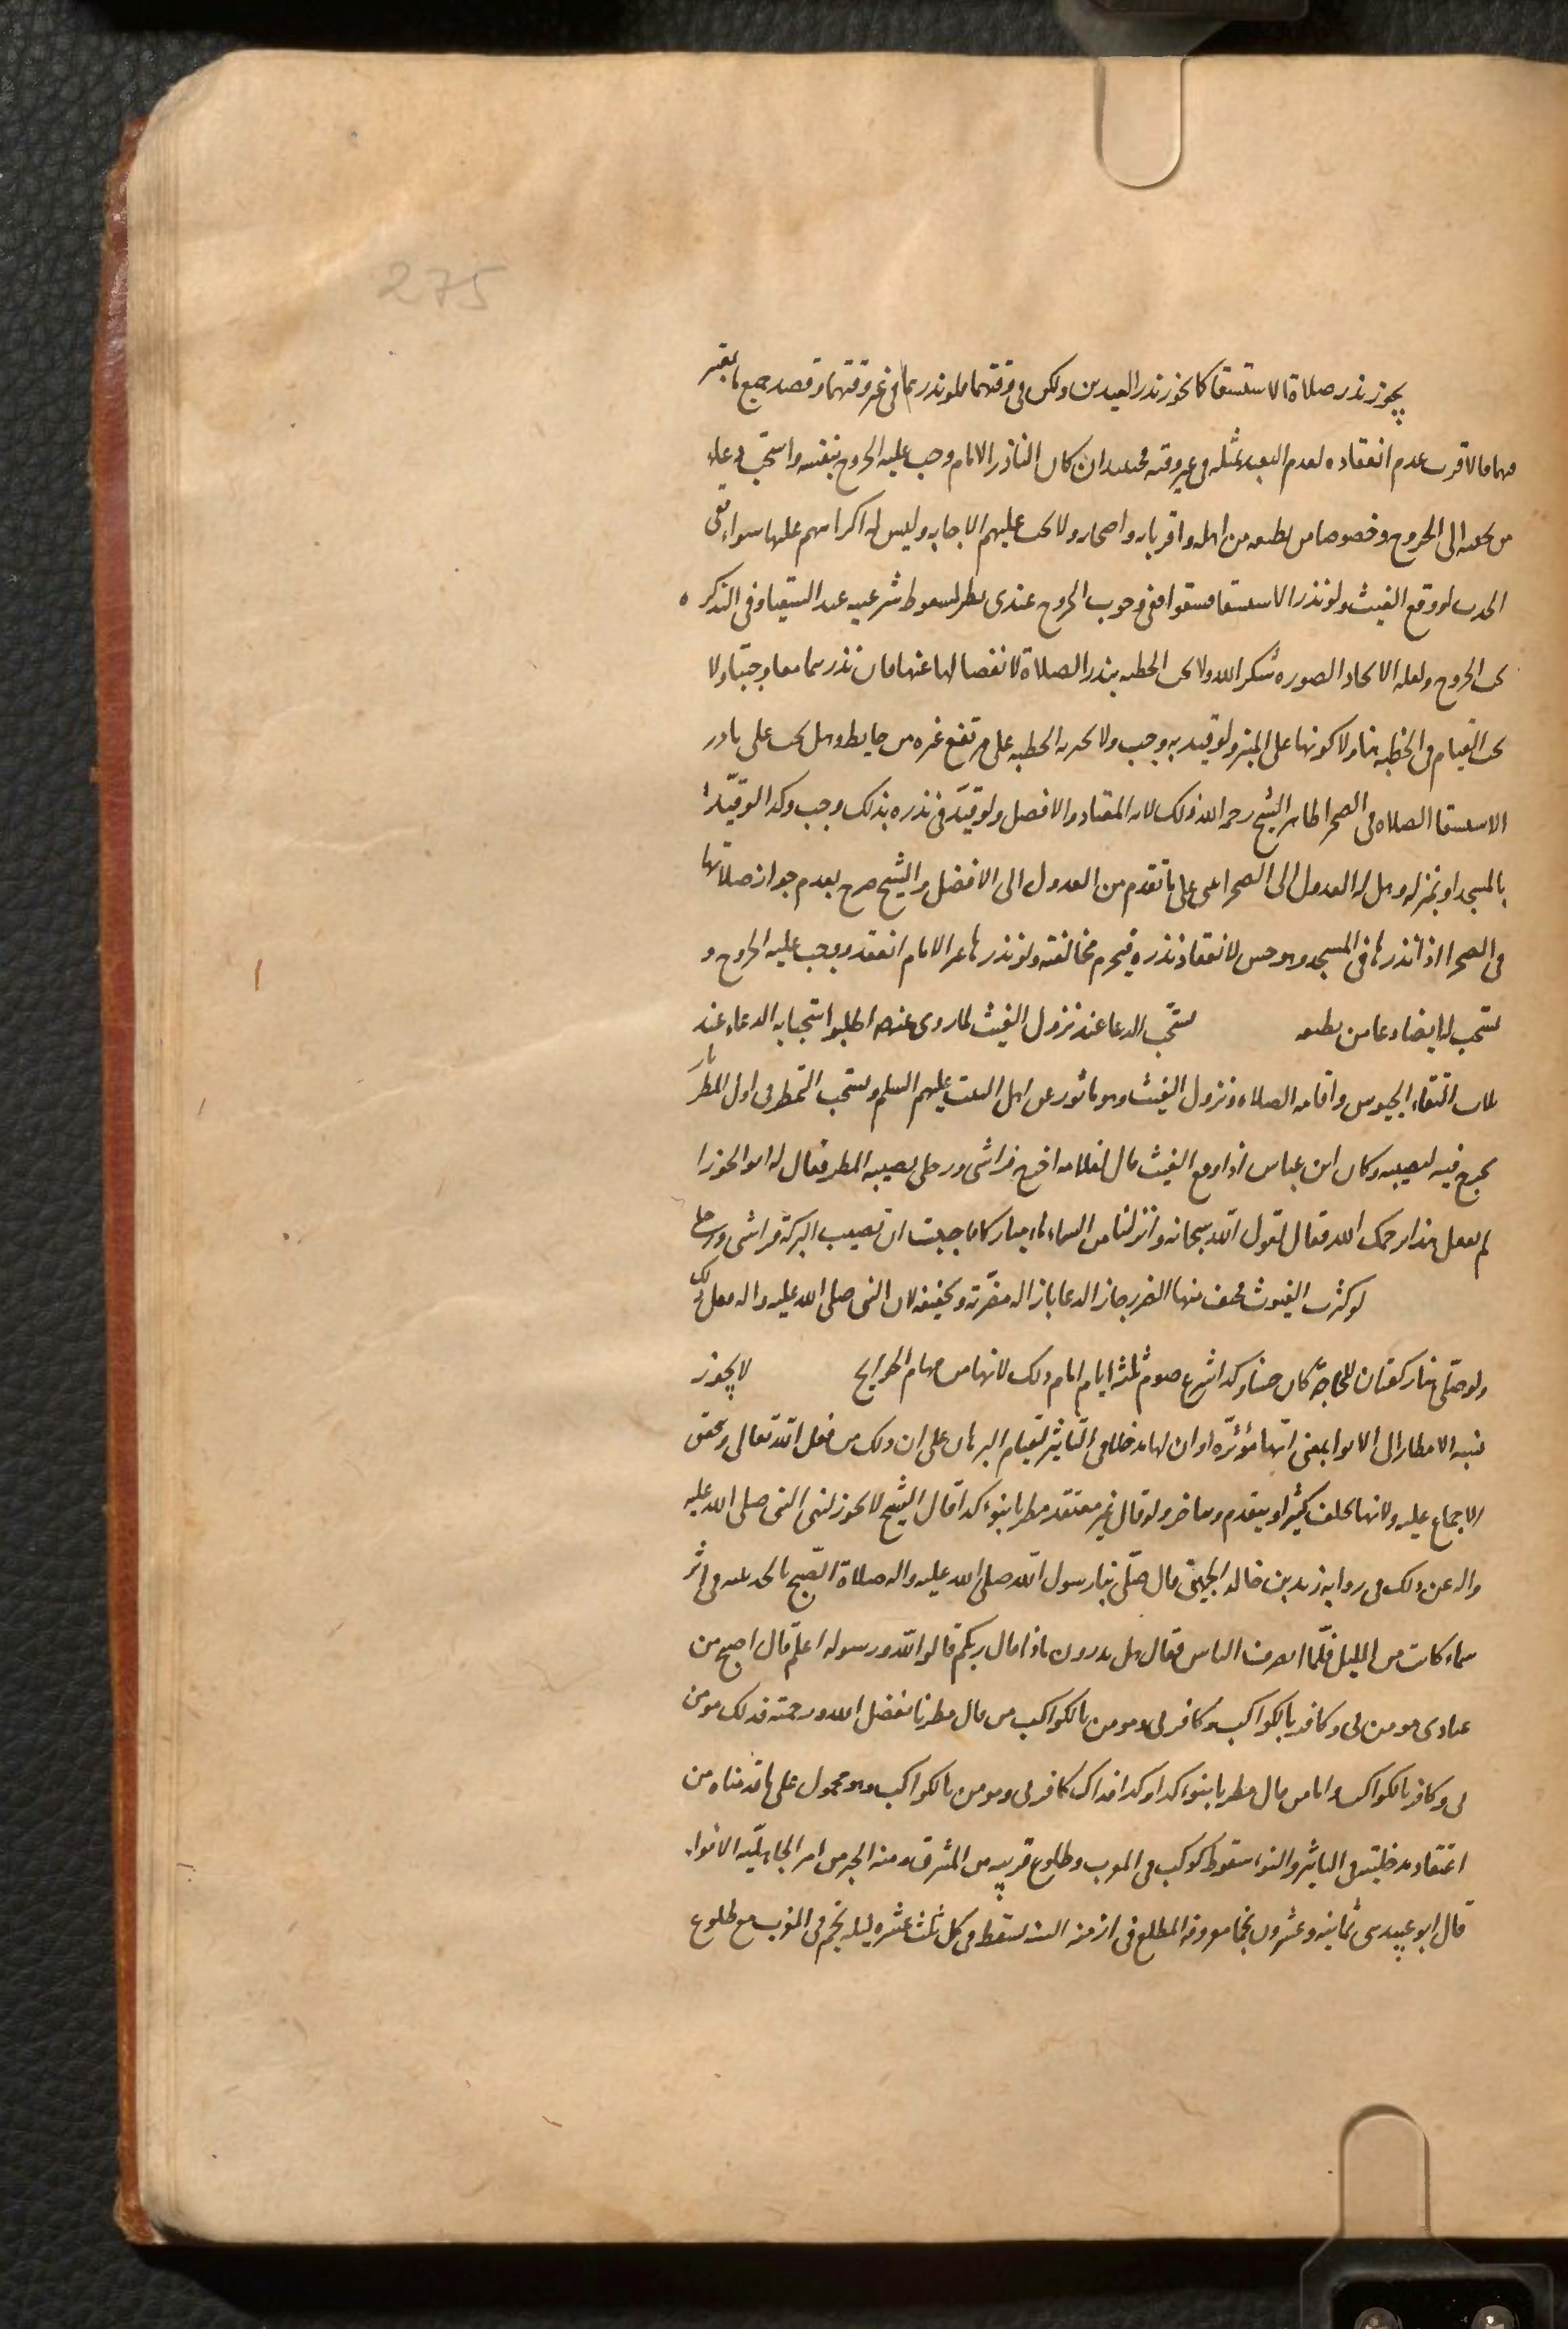 275
يجوز نذر صلاة الاستسقا كما يجوز نذر العيدين ولكن في وقتهما فلو نذرهما في غير وقتهما وقصد جميع ما يعتبر
فيهما فالاقرب عدم انعقاده لعدم التعبد بمثله في غير وقته فحينئذ ان كان الناذر الامام وجب عليه الخروج بنفسه واستحب دعاء
من يجيبه الى الخروج وخصوصا من يطيعه من اهله واقربائه واصحابه ولا يجب عليهم الاجابه وليس له اكراههم عليها سواء بقي
الجدب او وقع الغيث ولو نذر الاستسقا فسقوا ففي وجوب الخروج عندي نظر لسقوط شرعيه عند السقيا وفي التذكره
يجب الخروج ولعله الاتحاد الصوره شكرا لله ولا يجب الخطبه بنذر الصلاة لانفصالها عنها فان نذرهما معا وجبتا ولا
يجب القيام في الخطبه هنا ولا كونها على المنبر ولو قيد به وجب ولا يجزيه الخطبه على مرتفع غيره من حايط وهل يجب على ناذر
الاستسقا الصلاه في الصحرا ظاهر الشيخ رحمه الله ذلك لانه المعتاد والافضل ولو قيّد في نذره بذلك وجب وكذا لو قيّدها
بالمسجد او بمنزله وهل له العدول الى الصحرا هي على ما تقدم من العدول الى الافضل والشيخ صرح بعدم جواز صلاتها
في الصحرا اذا نذرها في المسجد وهو حسن لانعقاد نذره فيحرم مخالفته ولو نذرها غير الامام انعقد ووجب عليه الخروج و
يستحب له ايضا دعا من يطيعه يستحّب الدعا عند نزول الغيث لما روي عنهص اطلبوا استجابه الدعاء عند
ثلاث التقاء الجيوش واقامه الصلاه ونزول الغيث وهو ماثور عن اهل البيت عليهم السلم ويستحب التمطر في اول المطر بان
يخرج فيه ليصيبه وكان ابن عباس اذا وقع الغيث قال لغلامه اخرج فراشي ورحلي يصيبه المطر فقال له ابو الجوزا
لم تفعل هذا يرحمك الله فقال لقول الله سبحانه وانزلنا من السماء ماء مباركا فاحببت ان تصيب البركة فراشي ورحلي
لو كثرت الغيوث فخيف منها الضرر جاز الدعا بازاله مضرّته وتخفيفه لان النبي صلى الله عليه واله فعل ذلك
ولو صلّي هنا ركعتان للحاجة كان حسنا وكذا شرع صوم ثلثه ايام امام ذلك لانها من مهام الحوايج لا يجوز
نسبه الامطار الى الانوا بمعنى انها مؤثّره او ان لها مدخلا في التاثير لقيام البرهان على ان ذلك من فعل الله تعالى وتحقق
الاجماع عليه ولانها تخلف كثيرا ويتقدم ويتاخر ولو قال غير معتقد مطرنا بنوء كذا قال الشيخ لا يجوز لنهي النبي صلى الله عليه
واله عن ذلك في روايه زيد بن خالد الجهني قال صلّى بنا رسول الله صلى الله عليه واله صلاة الصّبح بالحديبيه في اثر
سماء كانت من الليل فلّما انصرف الناس فقال هل تدرون ماذا قال ربكم قالوا الله ورسوله اعلم قال اصبح من
عبادي مومن بي وكافر بالكواكب وكافر بي ومومن بالكواكب من قال مطرنا بفضل الله ورحمته فذلك مومن
بي وكافر بالكواكب واما من قال مطرنا بنوء كذا وكذا فذاك كافر بي ومومن بالكواكب وهو محمول على ما قدمناه من
اعتقاد مدخليته في التاثير والنوء سقوط كوكب في المغرب وطلوع رقيبه من المشرق ومنه الخبر من امر الجاهليّه الانواء
قال ابو عبيد هي ثمانيه وعشرون نجما معروفه المطالع في ازمنه السنه يسقط في كل ثلث عشره ليله نجم في المغرب مع طلوع